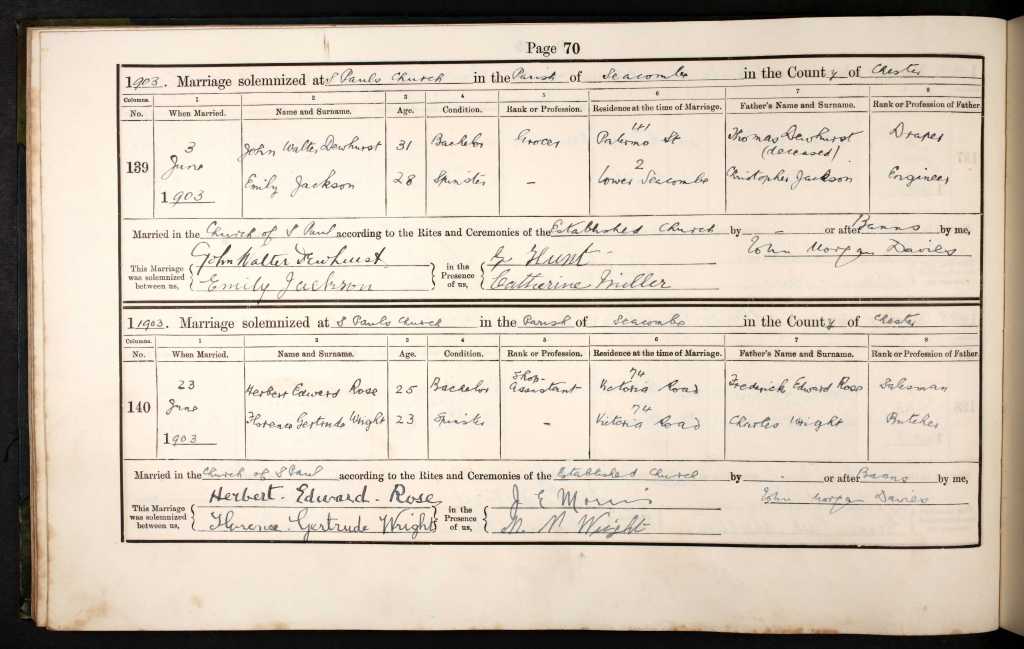 Page 70
1903. Marriage solemnized at S Pauls Church in the Parish of Seacombe in the County of Chester
Columns. 1 2 3 4 5 6 7 8
No. When Married. Name and Surname. Age. Condition. Rank or Profession. Residence at the time of Marriage. Father's Name and Surname. Rank or Profession of Father.
139 3 June 1903 John Walter Dewhurst 31 Bachelor Grocer 141 Palermo St Thomas Dewhurst (deceased) Draper
Emily Jackson 28 Spinster – 2 Lower Seacombe Christopher Jackson Engineer
Married in the Church of S Paul according to the Rites and Ceremonies of the Established Church by - or after Banns by me,
John Morgan Davies
This Marriage was solemnized between us, John Walter Dewhurst in the Presence of us, Hunt
Emily Jackson Catherine Miller
1903. Marriage solemnized at S Pauls Church in the Parish of Seacombe in the County of Chester
Columns. 1 2 3 4 5 6 7 8
No. When Married. Name and Surname. Age. Condition. Rank or Profession. Residence at the time of Marriage. Father's Name and Surname. Rank or Profession of Father.
140 23 June 1903 Herbert Edward Rose 25 Bachelor Shop-assistant 74 Victoria Road Frederick Edward Rose Salesman
Florence Gertrude Wright 23 Spinster – 74 Victoria Road Charles Wright Butcher
Married in the Church of S Paul according to the Rites and Ceremonies of the Established Church by - or after Banns by me,
John Morgan Davies
This Marriage was solemnized between us, Herbert Edward Rose in the Presence of us, J E Morris
Florence Gertrude Wright M. Wright